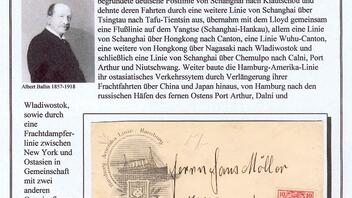 begründete deutsche Postlinie von Schanghai nach Kiautschou und
dehnte deren Fahrten durch eine weitere Linie von Schanghai über
Tsingtau nach Tafu-Tientsin aus, übernahm mit dem Lloyd gemeinsam
eine Flußlinie auf dem Yangtse (Schanghai-Hankau), allem eine Linie
von Schanghai über Hongkong nach Canton, eine Linie Wuhu-Canton,
eine weitere von Hongkong über Nagasaki nach Wladiwostok und
schließlich eine Linie von Schanghai über Chemulpo nach Calni, Port
Arthur und Niutschwang. Weiter baute die Hamburg-Amerika-Linie
ihr ostasiatisches Verkehrssytem durch Verlängerung ihrer
Frachtfahrten über China und Japan hinaus, von Hamburg nach den
russischen Häfen des fernen Ostens Port Arthur, Dalni und
Albert Ballin 1857-1918
Wladiwostok,
sowie durch
eine
Frachtdampfer-
linie zwischen
New York und
Ostasien in
Gemeinschaft
mit zwei
anderen
Hamburg Amerika Linie, Hamburg.
Herrn Hans Möller
10
10